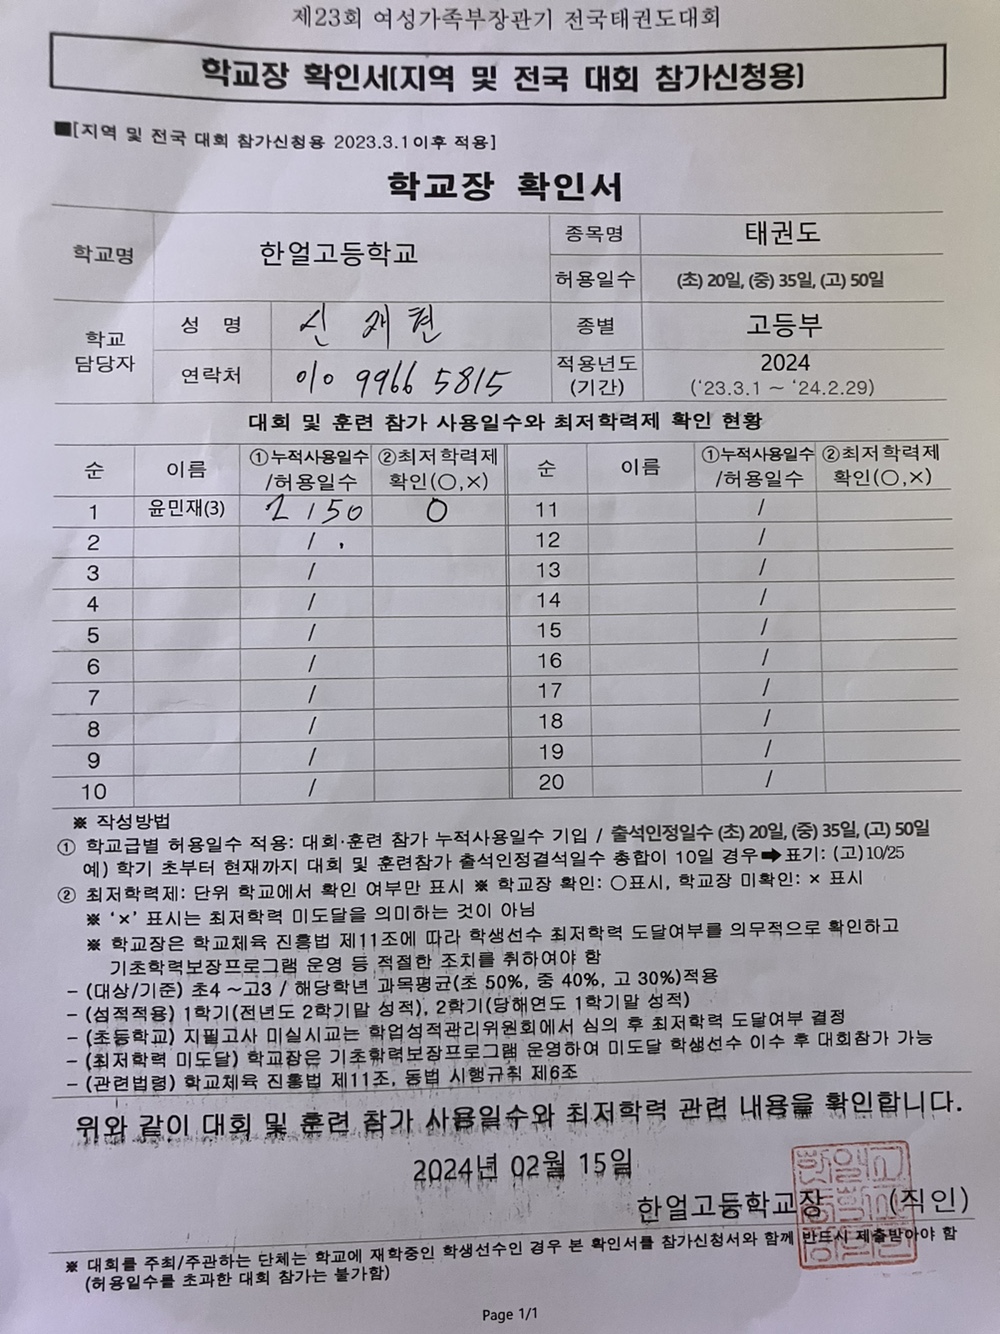 제23회 여성가족부장관기 전국태권도대회
학교장 확인서(지역 및 전국 대회 참가신청용)
■[지역 및 전국 대회 참가신청용 2023.3.1이후 적용]
학교장 확인서
학교명 한얼고등학교 종목명 태권도
허용일수 (초) 20일, (중) 35일, (고) 50일
학교 담당자 성 명 신재현 종별 고등부
연락처 010 9966 5815 적용년도 (기간) 2024 ('23.3.1 ~ '24.2.29)
대회 및 훈련 참가 사용일수와 최저학력제 확인 현황
순 이름 ①누적사용일수 /허용일수 ②최저학력제 확인(○,×) 순 이름 ①누적사용일수 /허용일수 ②최저학력제 확인(○,×)
1 윤민재(3) 2 / 50 O 11 /
2 / 12 /
3 / 13 /
4 / 14 /
5 / 15 /
6 / 16 /
7 / 17 /
8 / 18 /
9 / 19 /
10 / 20 /
※ 작성방법
① 학교급별 허용일수 적용: 대회·훈련 참가 누적사용일수 기입 / 출석인정일수 (초) 20일, (중) 35일, (고) 50일
예) 학기 초부터 현재까지 대회 및 훈련참가 출석인정결석일수 총합이 10일 경우➡표기: (고)10/25
② 최저학력제: 단위 학교에서 확인 여부만 표시 ※ 학교장 확인: ○표시, 학교장 미확인: × 표시
※ '×' 표시는 최저학력 미도달을 의미하는 것이 아님
※ 학교장은 학교체육 진흥법 제11조에 따라 학생선수 최저학력 도달여부를 의무적으로 확인하고
기초학력보장프로그램 운영 등 적절한 조치를 취하여야 함
- (대상/기준) 초4 ~고3 / 해당학년 과목평균(초 50%, 중 40%, 고 30%)적용
- (성적적용) 1학기(전년도 2학기말 성적), 2학기(당해연도 1학기말 성적)
- (초등학교) 지필고사 미실시교는 학업성적관리위원회에서 심의 후 최저학력 도달여부 결정
- (최저학력 미도달) 학교장은 기초학력보장프로그램 운영하여 미도달 학생선수 이수 후 대회참가 가능
- (관련법령) 학교체육 진흥법 제11조, 동법 시행규칙 제6조
위와 같이 대회 및 훈련 참가 사용일수와 최저학력 관련 내용을 확인합니다.
2024년 02월 15일
한얼고등학교장 (직인)
※ 대회를 주최/주관하는 단체는 학교에 재학중인 학생선수인 경우 본 확인서를 참가신청서와 함께 반드시 제출받아야 함
(허용일수를 초과한 대회 참가는 불가함)
Page 1/1